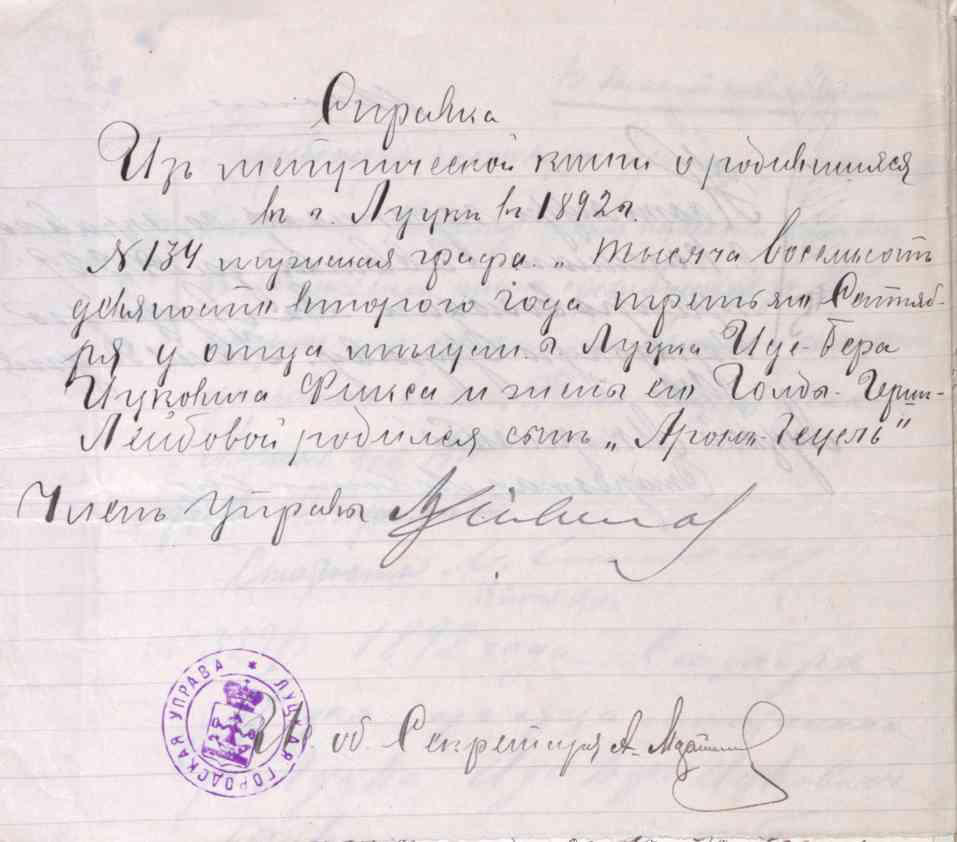 Справка
Изъ метрической книги о родившихся
въ г. Луцкѣ въ 1892 г.
№ 134 мужская графа. „Тысяча восемьсотъ
девяносто второго года третьяго Сентяб-
ря у отца мѣщ. г. Луцка Ице-Бера
Ицковича Фикса и жены его Голды-Герш-
Лейбовой родился сынъ „Аронъ-Гецель"
Членъ Управы
И. об. Секретаря А.
ЛУЦКАЯ ГОРОДСКАЯ УПРАВА *